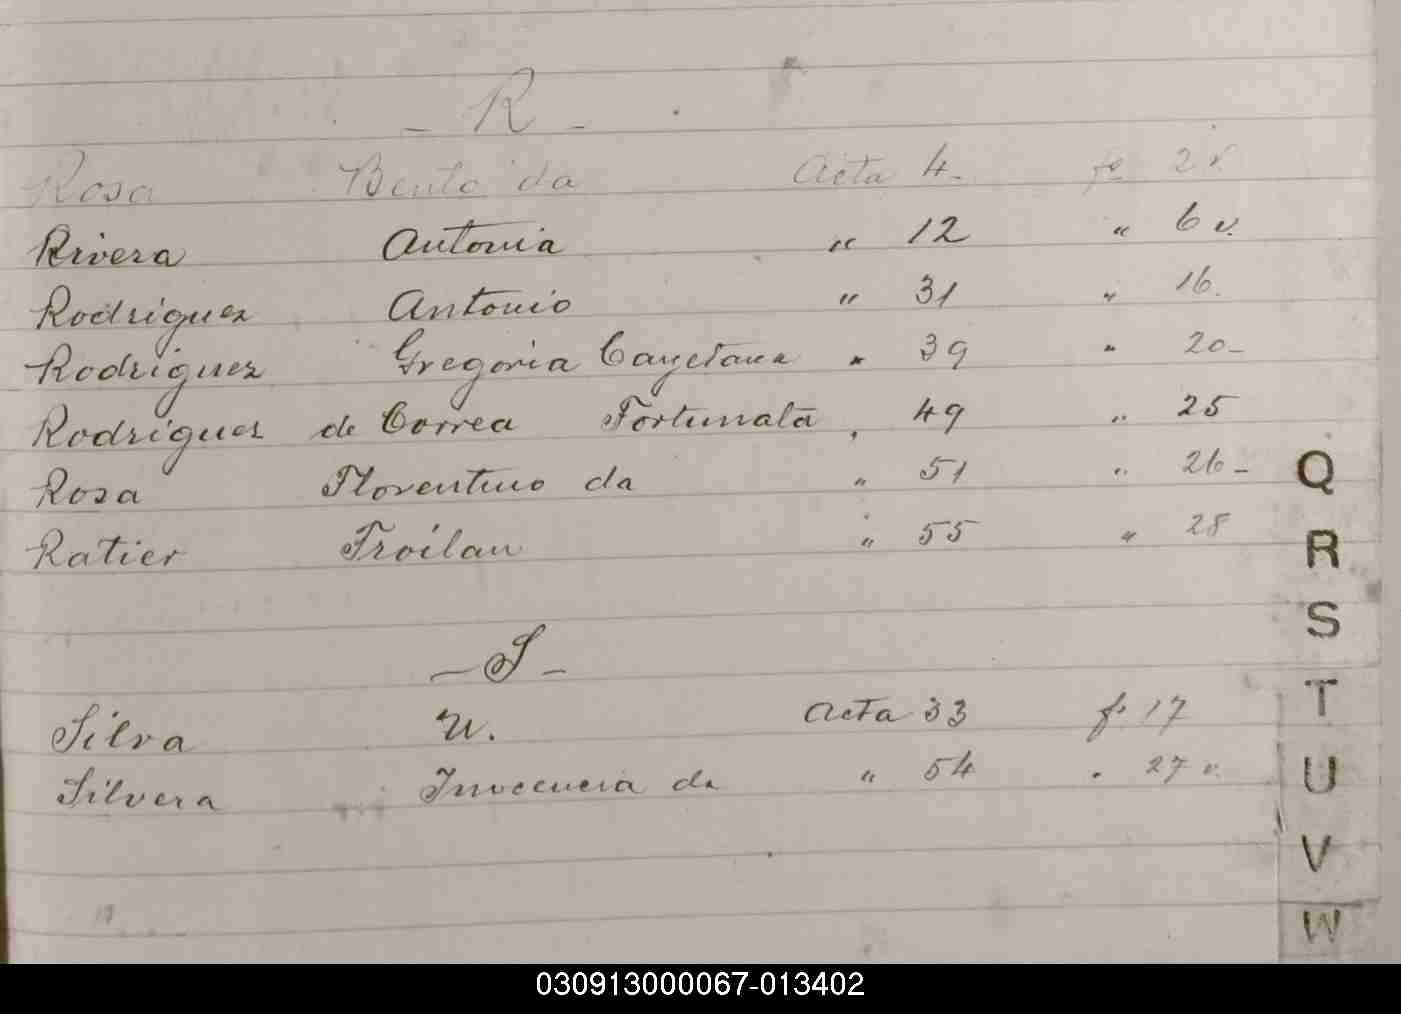 - R -
Rosa Bento da Acta 4- fo 2 v.
Rivera Antonia " 12 " 6 v.
Rodriguez Antonio " 31 " 16.
Rodriguez Gregoria Cayetana " 39 " 20-
Rodriguez de Correa Fortunata " 49 " 25
Rosa Florentino da " 51 " 26-
Ratier Froilan " 55 " 28
- S -
Silva N. Acta 33 fo 17
Silvera Inocencia da " 54 " 27 v.
Q
R
S
T
U
V
W
030913000067-013402